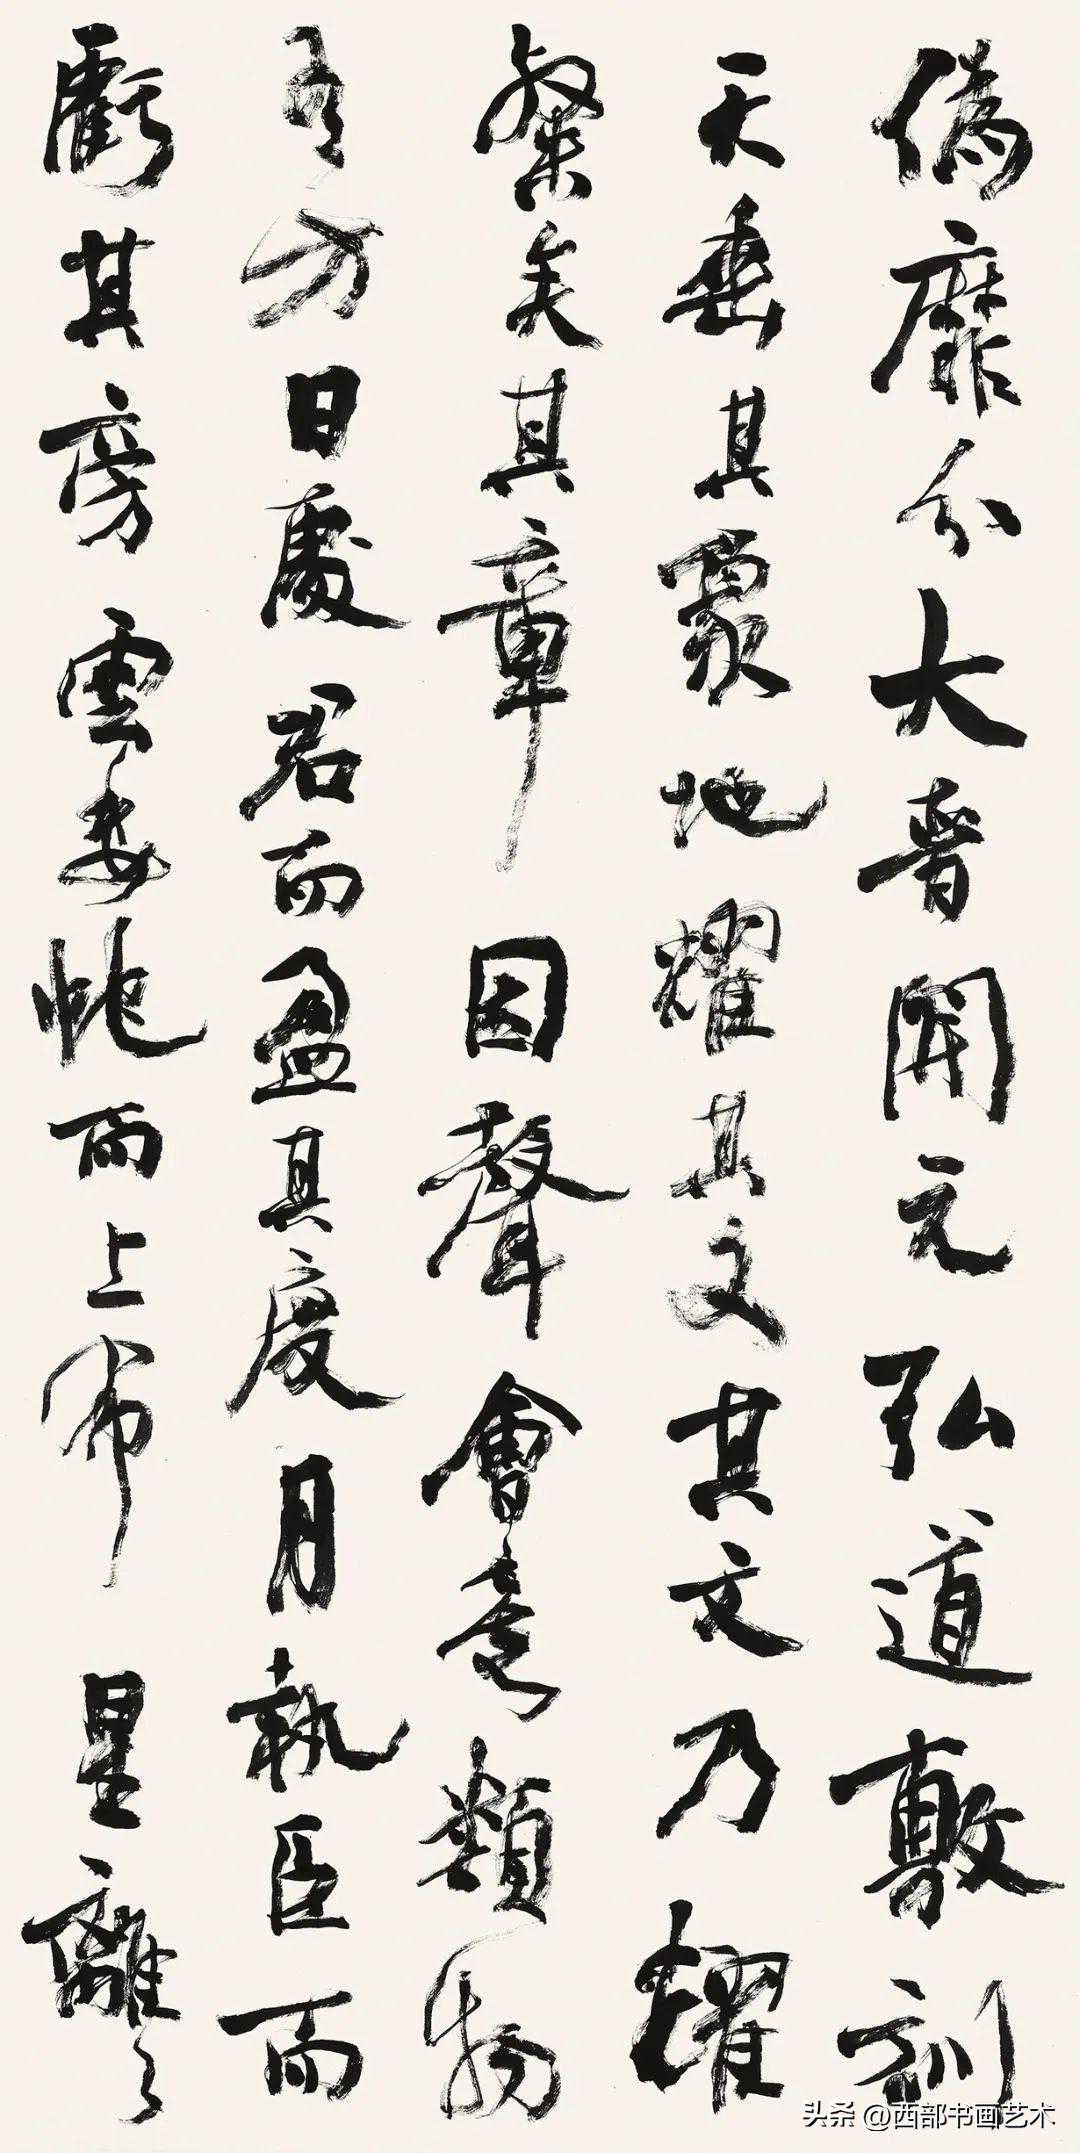 偽靡分大晉開元弘道敷訓
天垂其象地耀其文其文乃耀
粲矣其章因聲會意類物
有方日處君而盈其度月執臣而
虧其旁雲委虵而上布星離離
头条 @西部书画艺术